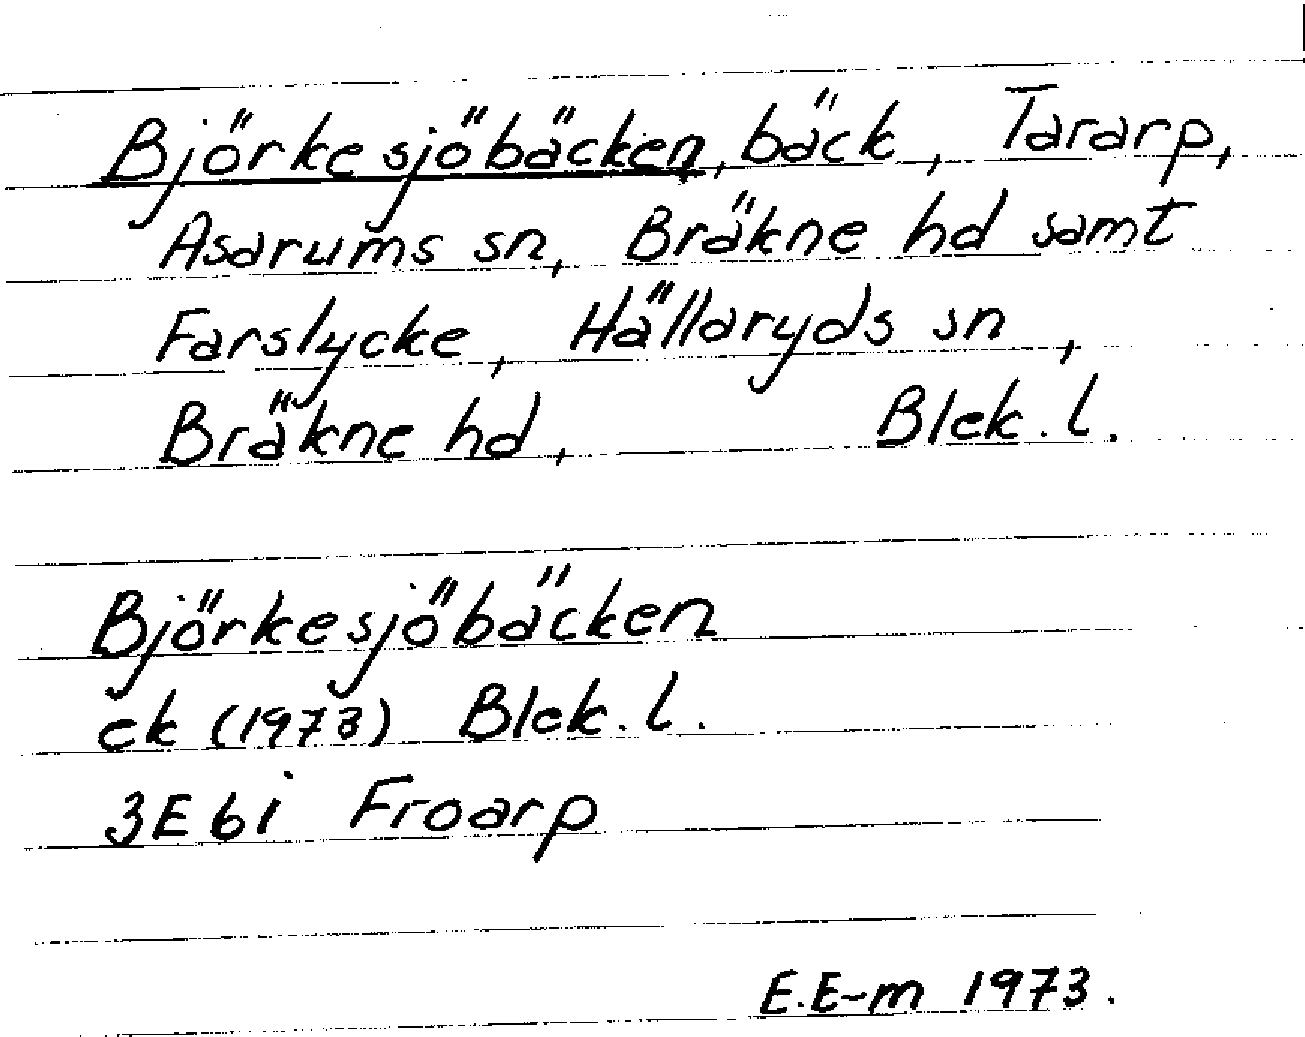 Björkesjöbäcken, bäck, Tararp,
Asarums sn, Bräkne hd samt
Farslycke, Hällaryds sn,
Bräkne hd, Blek. l.
Björkesjöbäcken
ek (1973) Blek. l.
3E6i Froarp
E.E-m 1973.